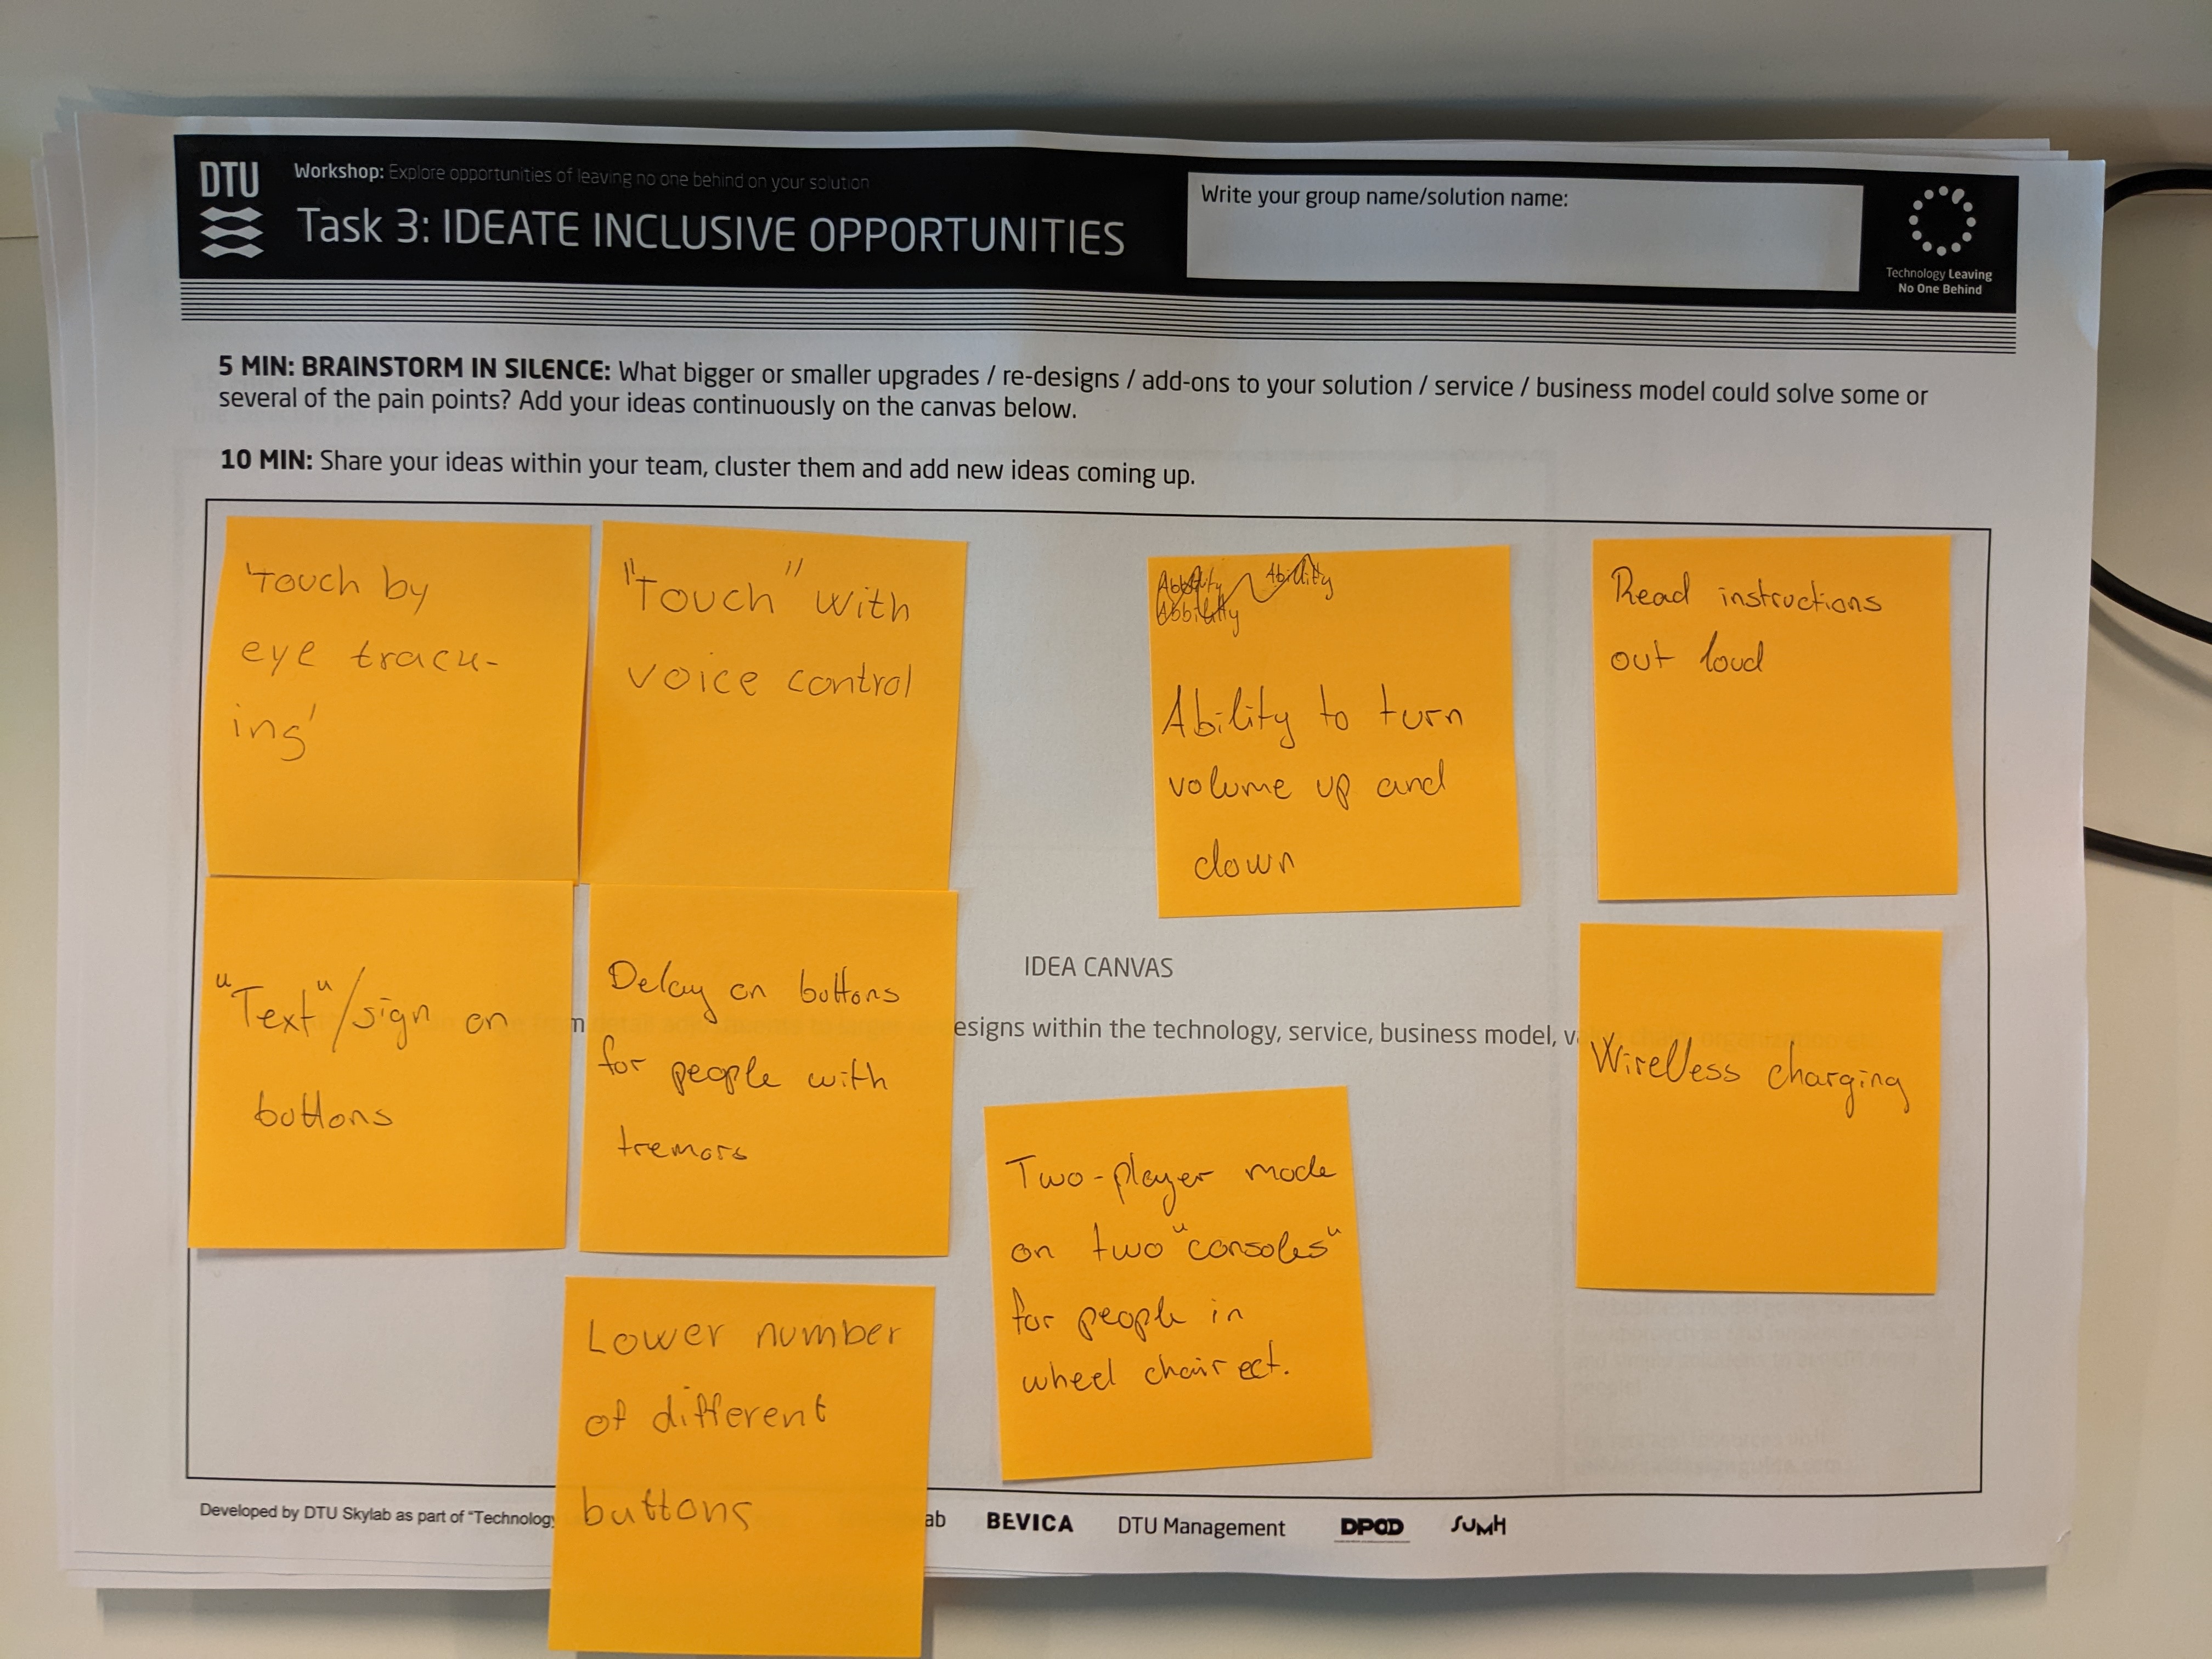 DTU
Workshop: Explore opportunities of leaving no one behind on your solution
Task 3: IDEATE INCLUSIVE OPPORTUNITIES
Write your group name/solution name:
Technology Leaving
No One Behind
5 MIN: BRAINSTORM IN SILENCE: What bigger or smaller upgrades / re-designs / add-ons to your solution / service / business model could solve some or
several of the pain points? Add your ideas continuously on the canvas below.
10 MIN: Share your ideas within your team, cluster them and add new ideas coming up.
'Touch by
eye track-
ing'
"Touch" with
voice control
Ability
Ability to turn
volume up and
down
Read instructions
out loud
"Text"/sign on
buttons
Delay on buttons
for people with
tremors
IDEA CANVAS
esigns within the technology, service, business model, v
Wireless charging
Two-player mode
on two "consoles"
for people in
wheel chair ect.
Lower number
of different
buttons
Developed by DTU Skylab as part of "Technology
ab
BEVICA
DTU Management
DPOD
SUMH